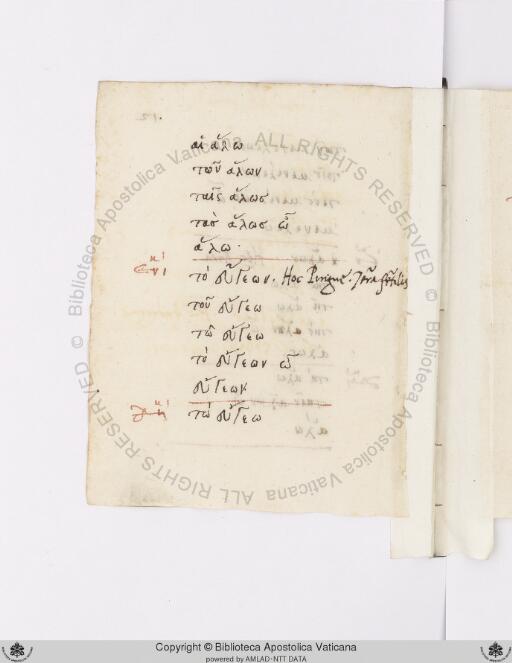 αἱ ἅλω
τῶν ἅλων
ταῖς ἅλωσ
τὰσ ἅλωσ ὦ
ἅλω·
ἑνικὰ τὸ εὔγεων. Hoc Pingue. Terra fertilis
τοῦ εὔγεω
τῶ εὔγεω
τὸ εὔγεων ὦ
εὔγεων
τὼ εὔγεω
© Biblioteca Apostolica Vaticana ALL RIGHTS RESERVED
© Biblioteca Apostolica Vaticana ALL RIGHTS RESERVED
Copyright © Biblioteca Apostolica Vaticana
powered by AMLAD-NTT DATA